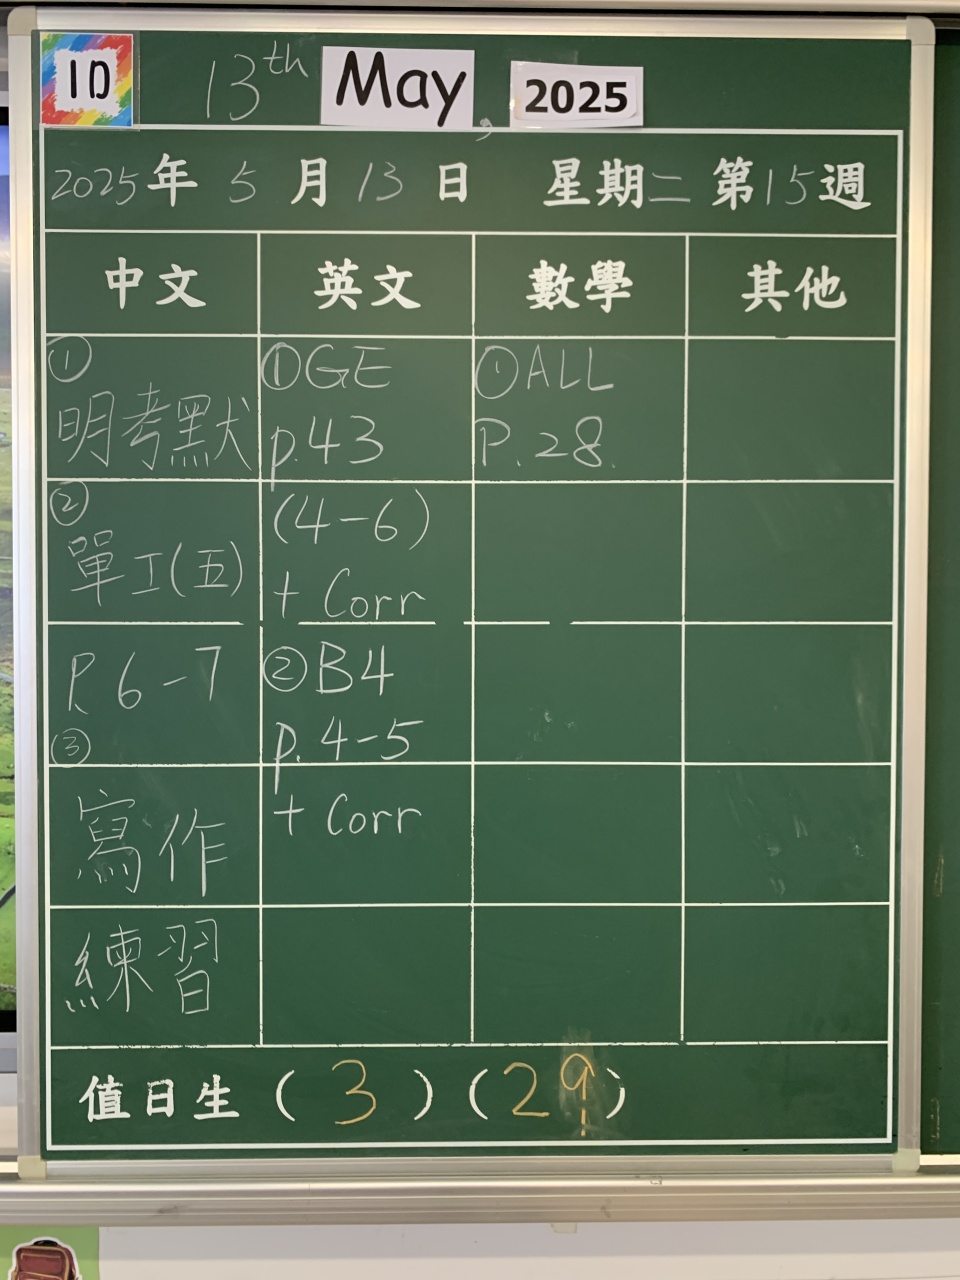 1D
13th May, 2025
2025年 5月 13日 星期二 第15週
中文 英文 數學 其他
① ①GE ①ALL
明考默 p.43 P.28.
② (4-6)
單工(五) + Corr
P.6-7 ②B4
③ p.4-5
寫作 + Corr
練習
值日生 ( 3 ) ( 29 )